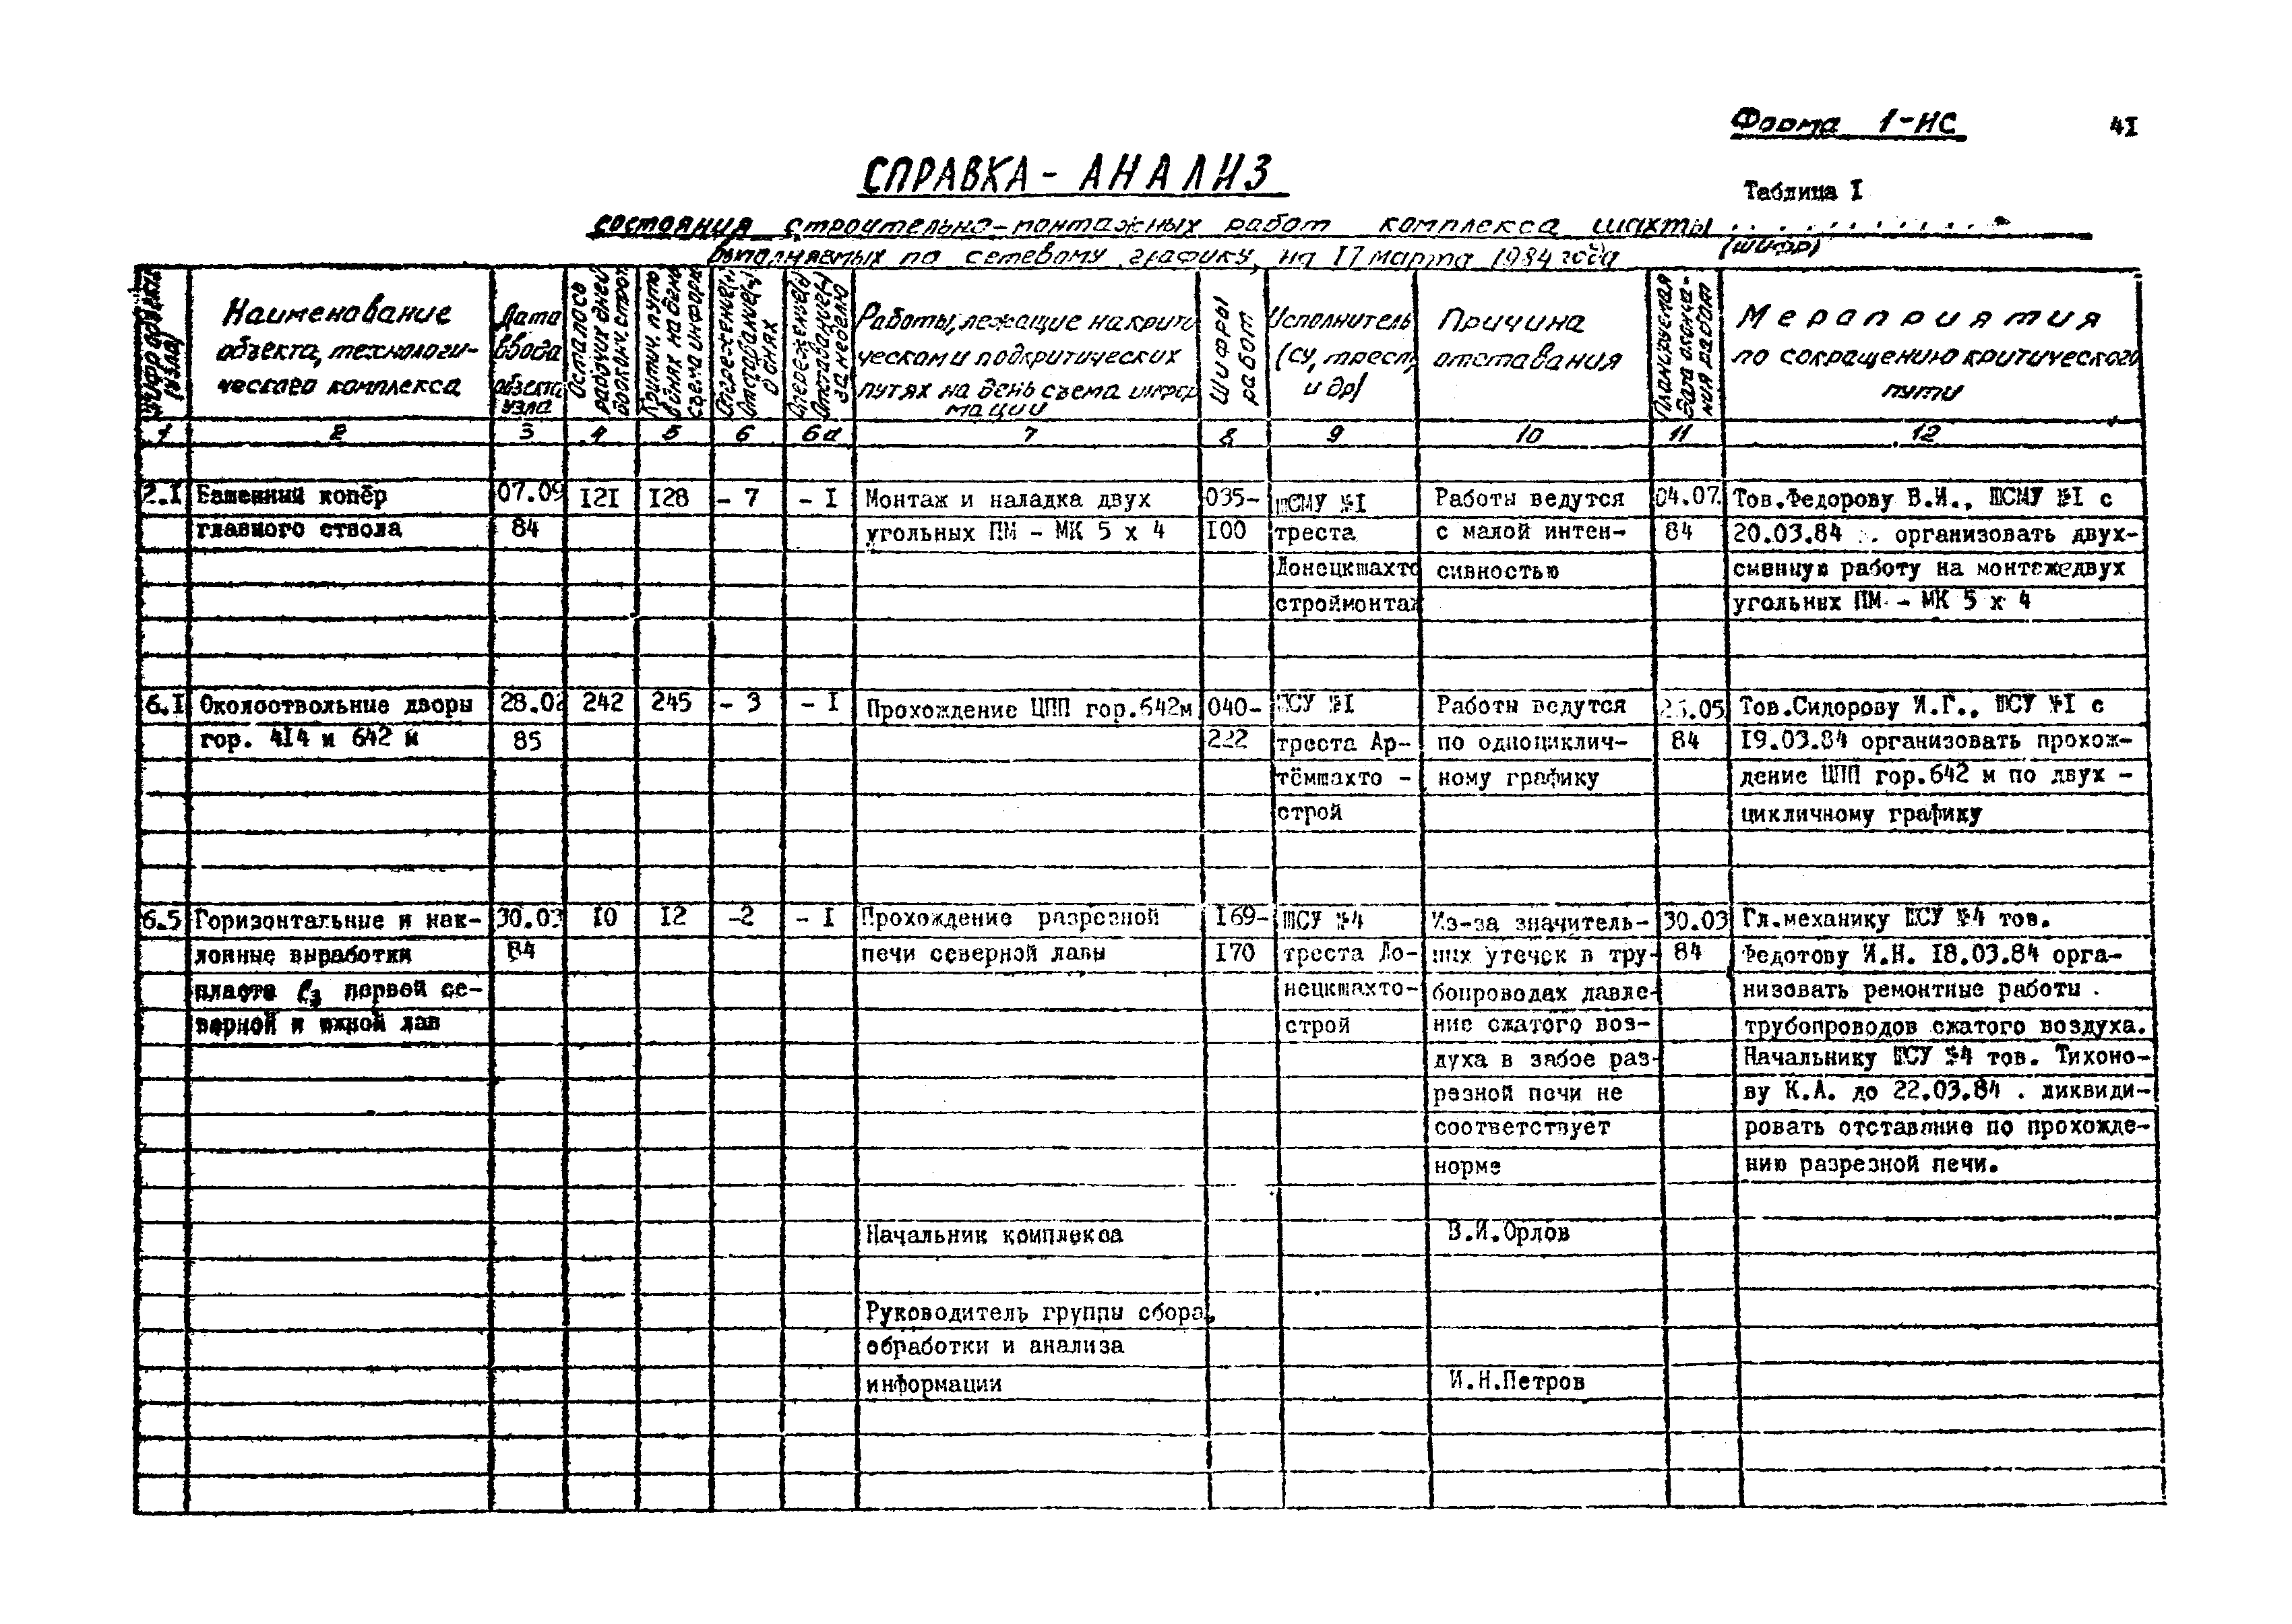 Форма 1-НС
41
СПРАВКА - АНАЛИЗ
Таблица I
состояния строительно-монтажных работ комплекса шахты . . . . . . . . . . . .
(шифр)
выполняемых по сетевому графику, на 17 марта 1984 года
Наименование
объекта, технологи-
ческого комплекса
Дата
ввода
объекта
узла
Осталось
рабочих дней
до оконч. строит
Критич. путь
в днях на день
съема информ
Опережение(+)
Отставание(-)
в днях
Опережение(+)
Отставание(-)
за неделю
Работы, лежащие на крити
ческом и подкритических
путях на день съема инфор
мации
Шифры
работ
Исполнитель
(су, трест,
и др)
Причина
отставания
Планируемая
дата оконча-
ния работ
Мероприятия
по сокращению критического
пути
1 2 3 4 5 6 6а 7 8 9 10 11 12
2.I
Башенный копёр
главного ствола
07.09
84
I2I
I28
- 7
- I
Монтаж и наладка двух
угольных ПМ - МК 5 х 4
035-
I00
ШСМУ №I
треста
Донецкшахто
строймонтаж
Работы ведутся
с малой интен-
сивностью
04.07.
84
Тов.Федорову В.И., ШСМУ №I с
20.03.84 . организовать двух-
сменную работу на монтажедвух
угольных ПМ - МК 5 х 4
6.I
Околоствольные дворы
гор. 4I4 и 642 м
28.02
85
242
245
- 3
- I
Прохождение ЦПП гор.642м
040-
222
ШСУ №I
треста Ар-
тёмшахто -
строй
Работы ведутся
по одноциклич-
ному графику
.05
84
Тов.Сидорову И.Г., ШСУ №I с
I9.03.84 организовать прохож-
дение ЦПП гор.642 м по двух -
цикличному графику
6.5
Горизонтальные и нак-
лонные выработки
пласта ℓ₃ первой се-
верной и южной лав
30.03
84
I0
I2
-2
- I
Прохождение разрезной
печи северной лавы
I69-
I70
ШСУ №4
треста До-
нецкшахто-
строй
Из-за значитель-
ных утечек в тру-
бопроводах давле-
ние сжатого воз-
духа в забое раз-
резной печи не
соответствует
норме
30.03
84
Гл.механику ШСУ №4 тов.
Федотову И.Н. I8.03.84 орга-
низовать ремонтные работы .
трубопроводов сжатого воздуха.
Начальнику ШСУ №4 тов. Тихоно-
ву К.А. до 22.03.84 . ликвиди-
ровать отставание по прохожде-
нию разрезной печи.
Начальник комплекса
В.И.Орлов
Руководитель группы сбора,
обработки и анализа
информации
И.Н.Петров